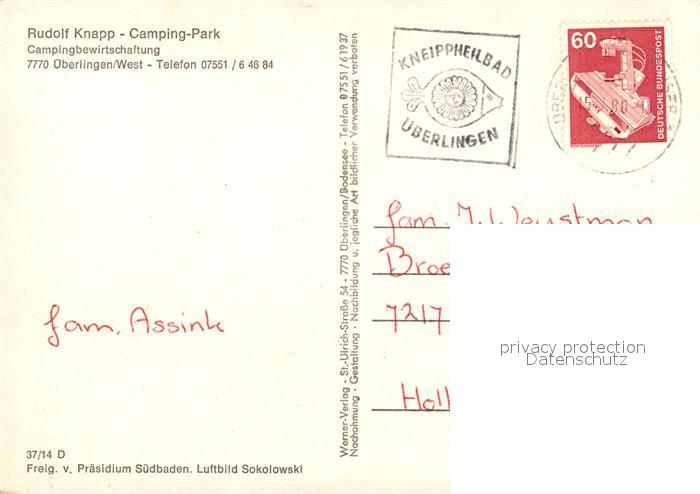 Rudolf Knapp - Camping-Park
Campingbewirtschaftung
7770 Überlingen/West - Telefon 07551 / 6 46 84
fam. Assink
37/14 D
Freig. v. Präsidium Südbaden. Luftbild Sokolowski
Werner-Verlag - St.-Ulrich-Straße 54 - 7770 Überlingen/Bodensee - Telefon 07551/61937
Nachahmung - Gestaltung - Nachbildung u. jegliche Art bildlicher Verwendung verboten
KNEIPPHEILBAD
ÜBERLINGEN
60
DEUTSCHE BUNDESPOST
fam. J. Weustman
Broe
7217
Holl
privacy protection
Datenschutz